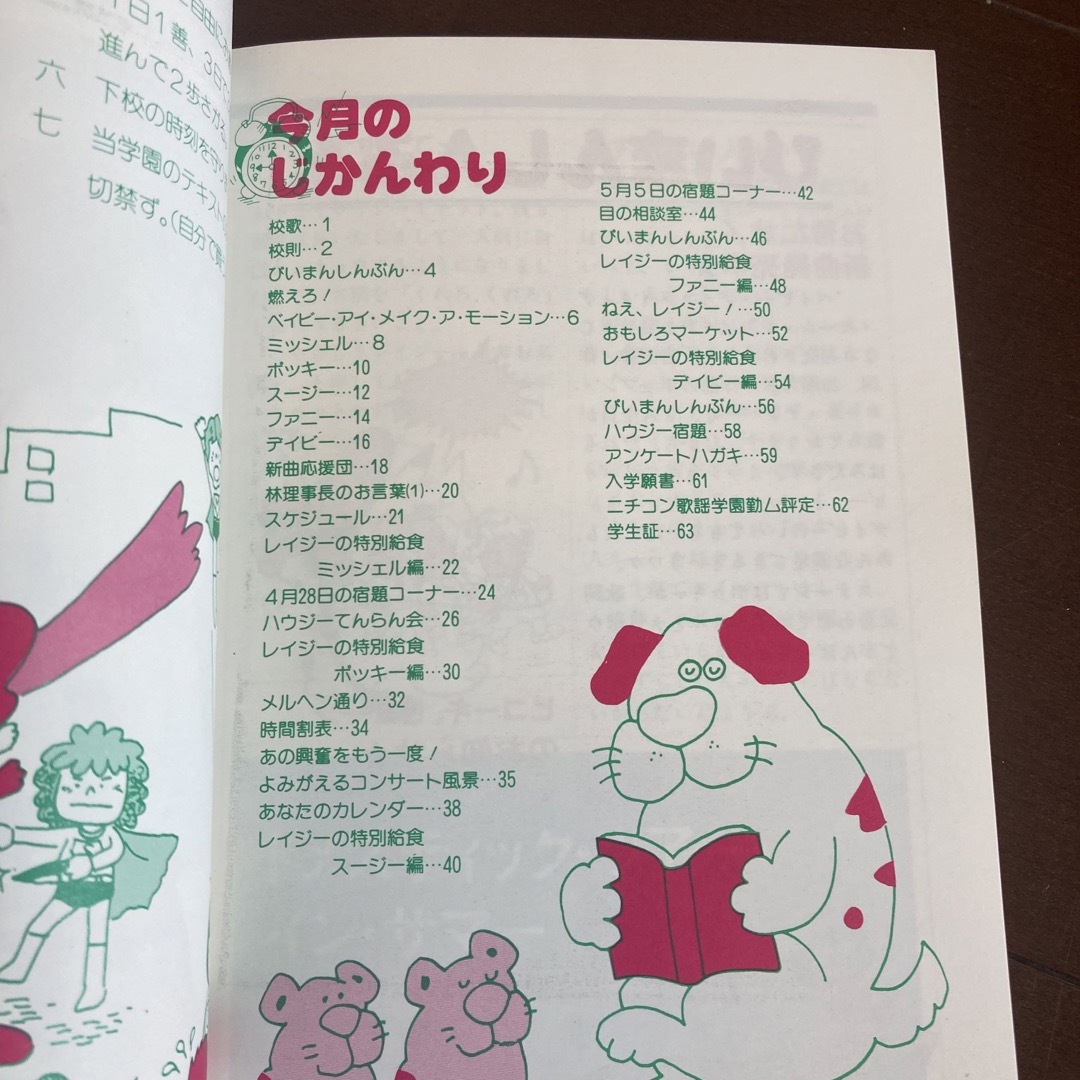 自由に
1日1善、3日で
進んで2歩さがる
六 下校の時刻を守
七 当学園のテキスト
切禁ず。(自分で
今月の
じかんわり
校歌…1
校則…2
びいまんしんぶん…4
燃えろ!
ベイビー・アイ・メイク・ア・モーション…6
ミッシェル…8
ポッキー…10
スージー…12
ファニー…14
デイビー…16
新曲応援団…18
林理事長のお言葉(1)…20
スケジュール…21
レイジーの特別給食
ミッシェル編…22
4月28日の宿題コーナー…24
ハウジーてんらん会…26
レイジーの特別給食
ポッキー編…30
メルヘン通り…32
時間割表…34
あの興奮をもう一度!
よみがえるコンサート風景…35
あなたのカレンダー…38
レイジーの特別給食
スージー編…40
5月5日の宿題コーナー…42
目の相談室…44
びいまんしんぶん…46
レイジーの特別給食
ファニー編…48
ねえ、レイジー!…50
おもしろマーケット…52
レイジーの特別給食
デイビー編…54
びいまんしんぶん…56
ハウジー宿題…58
アンケートハガキ…59
入学願書…61
ニチコン歌謡学園勤ム評定…62
学生証…63